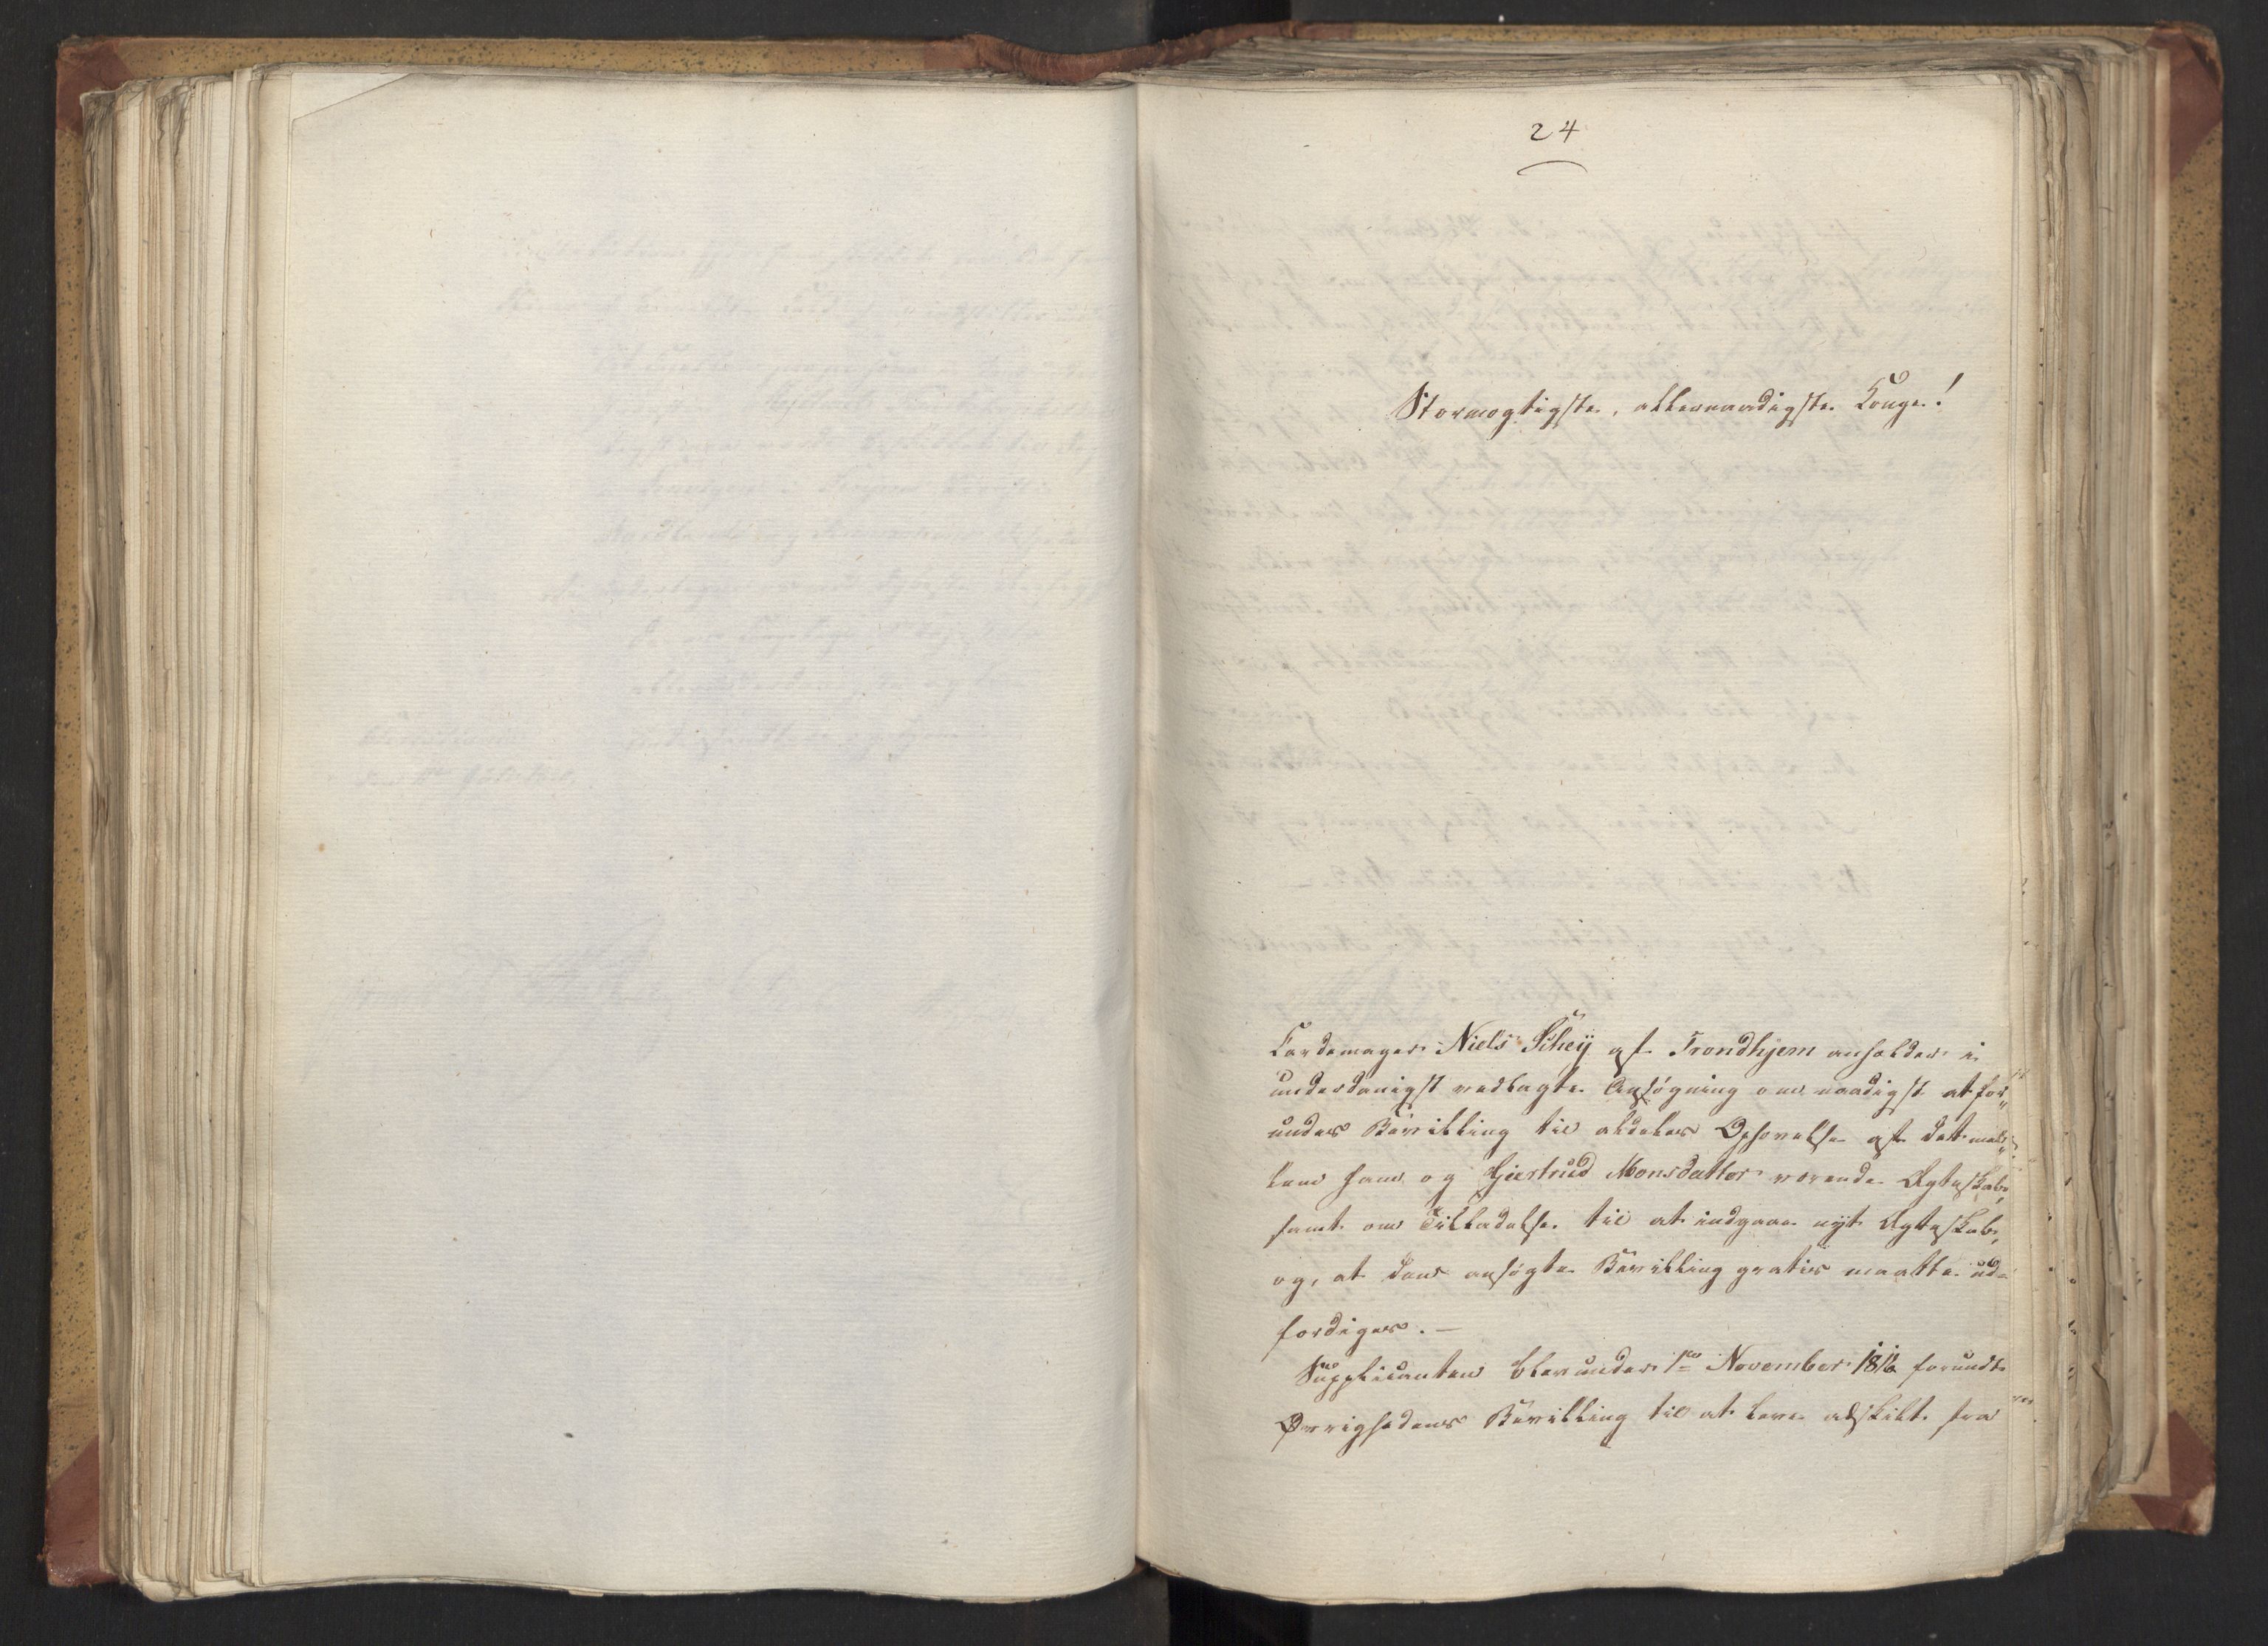 24
Stormægtigste, allernaadigste Konge!
Kardemager Niels Scheij af Trondhjem anholder i
underdanigst vedlagte Ansøgning om naadigst at for„
undes Bevilling til aldeles Ophævelse af det mel„
lem ham og Gjertrud Monsdatter værende Ægteskab,
samt om Tilladelse til at indgaae nyt Ægteskab,
og, at den ansøgte Bevilling gratis maatte ud-
færdiges. —
Supplicanten blev under 1ste November 1816 forundt
Øvrighedens Bevilling til at leve adskilt fra